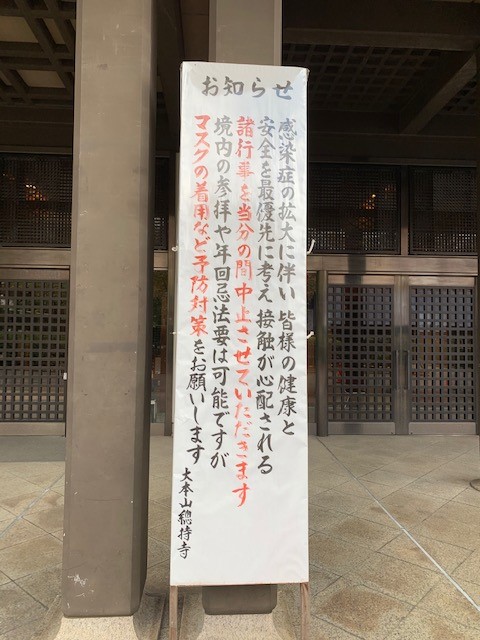 お知らせ
感染症の拡大に伴い 皆様の健康と
安全を最優先に考え 接触が心配される
諸行事を当分の間中止させていただきます
境内の参拝や年回忌法要は可能ですが
マスクの着用など予防対策をお願いします
大本山總持寺